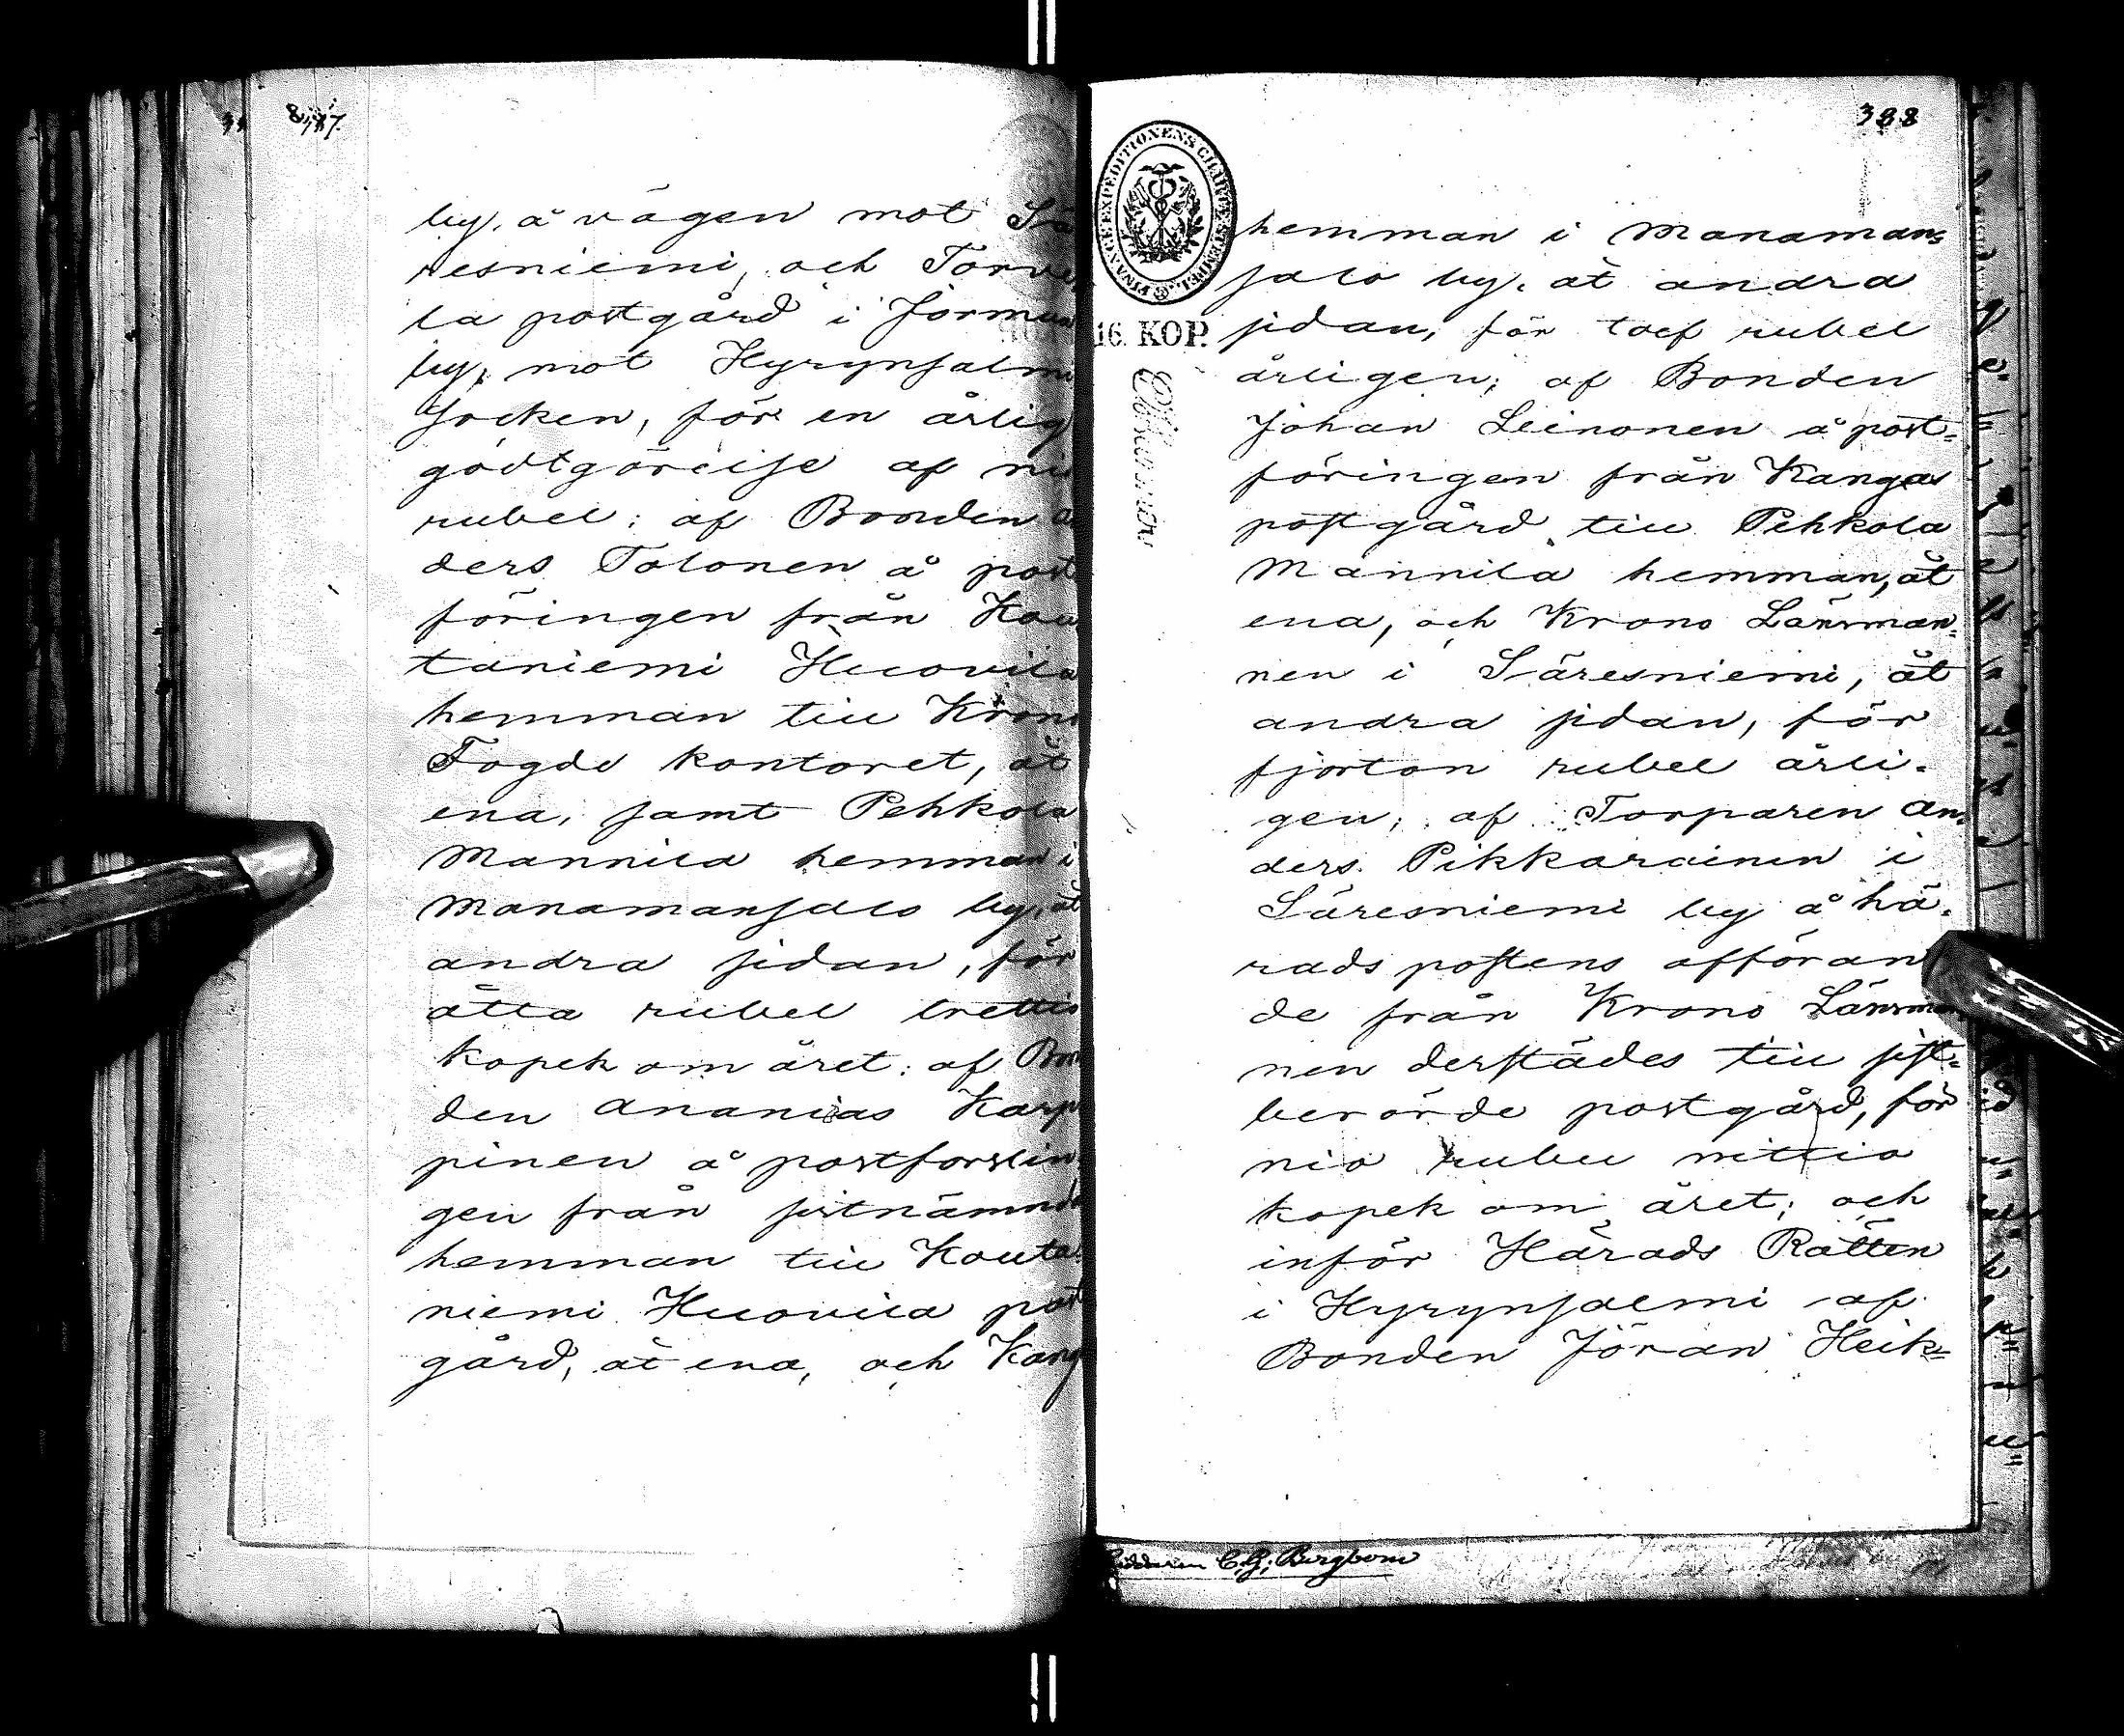 387.
by, å vägen mot Sä
resniemi, och Torve
la postgård i Jormua
by, mot Hyrynsalmi
Socken, för en årlig
godtgörelse af nio
rubel; af Bonden An
ders Tolonen å post
föringen från Kou
taniemi Huovila
hemman till Krono
Fogde kontoret, åt
ena, samt Pehkola
Mannila hemman i
Manamansalo by, åt
andra sidan, för
åtta rubel trettio
kopek om året; af Bon
den Ananias Karp
pinen å postforslin
gen från sistnämnde
hemman till Kouta
niemi Huovila post
gård, åt ena, och Kang
388
FINANCE EXPEDITIONENS CHARTÆ STEMPEL.
16. KOP.
hemman i Manaman=
salo by, åt andra
sidan, för tolf rubel
årligen; af Bonden
Johan Leinonen å post=
föringen från Kangas
postgård till Pehkola
Mannila hemman, åt
ena, och Krono Länsman=
nen i Säresniemi, åt
andra sidan, för
fjorton rubel årli=
gen; af Torparen An=
ders Pikkarainen i
Säresniemi by å hä=
rads postens afföran
de från Krono Länsman
nen derstädes till sist=
berörde postgård, för
nio rubel nittio
kopek om året; och
inför Härads Rätten
i Hyrynsalmi af
Bonden Jöran Heik=
C. G. Bergbom